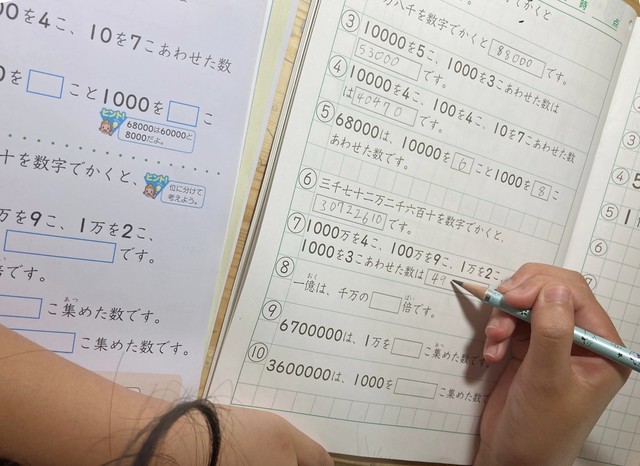 00を4こ、10を7こあわせた数
を□こと1000を□こ
ヒント!
68000は60000と
8000だよ。
十を数字でかくと、
ヒント!
位に分けて
考えよう。
万を9こ、1万を2こ、
です。
倍です。
こ集めた数です。
こ集めた数です。
時 点
万八千を数字でかくと 88000 です。
③ 10000を5こ、1000を3こあわせた数は
53000 です。
④ 10000を4こ、100を4こ、10を7こあわせた数
は 40470 です。
⑤ 68000は、10000を 6 こと1000を 8 こ
あわせた数です。
⑥ 三千七十二万二千六百十を数字でかくと、
30722610 です。
⑦ 1000万を4こ、100万を9こ、1万を2こ、
1000を3こあわせた数は 49
⑧ 一億は、千万の□倍です。
⑨ 6700000は、1万を□こ集めた数です。
⑩ 3600000は、1000を□こ集めた数で
③
④
⑤
⑥